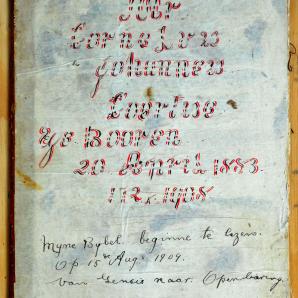 Mr
Cornelus
Johannes
Coertse
Geboren
20 April 1883
Myne Bybel. beginne te lezen.
Op 15de Aug: 1909.
van Genesis naar Openbaring.